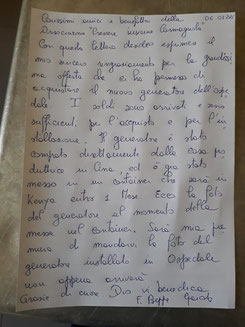 Carissimi amici e benefattori della
Associazione "Cuore
Con questa lettera desidero esprimere il
mio sincero ringraziamento per la graditissi
ma offerta che ci ha permesso di
acquistare il nuovo generatore dell'ospe
dale. I soldi sono arrivati e sono
sufficienti per l'acquisto e per l'in
stallazione. Il generatore è stato
comprato direttamente dalla casa pro
duttrice in Cina, ed è già stato
messo in un container che sarà in
Kenya entro 1 Mese. Ecco le foto
del generatore al momento della
messa nel container. Sarà mia pre
mura di mandarvi le foto del
generatore installato in Ospedale
non appena arriverà
Grazie di cuore Dio vi benedica
F. Beppe